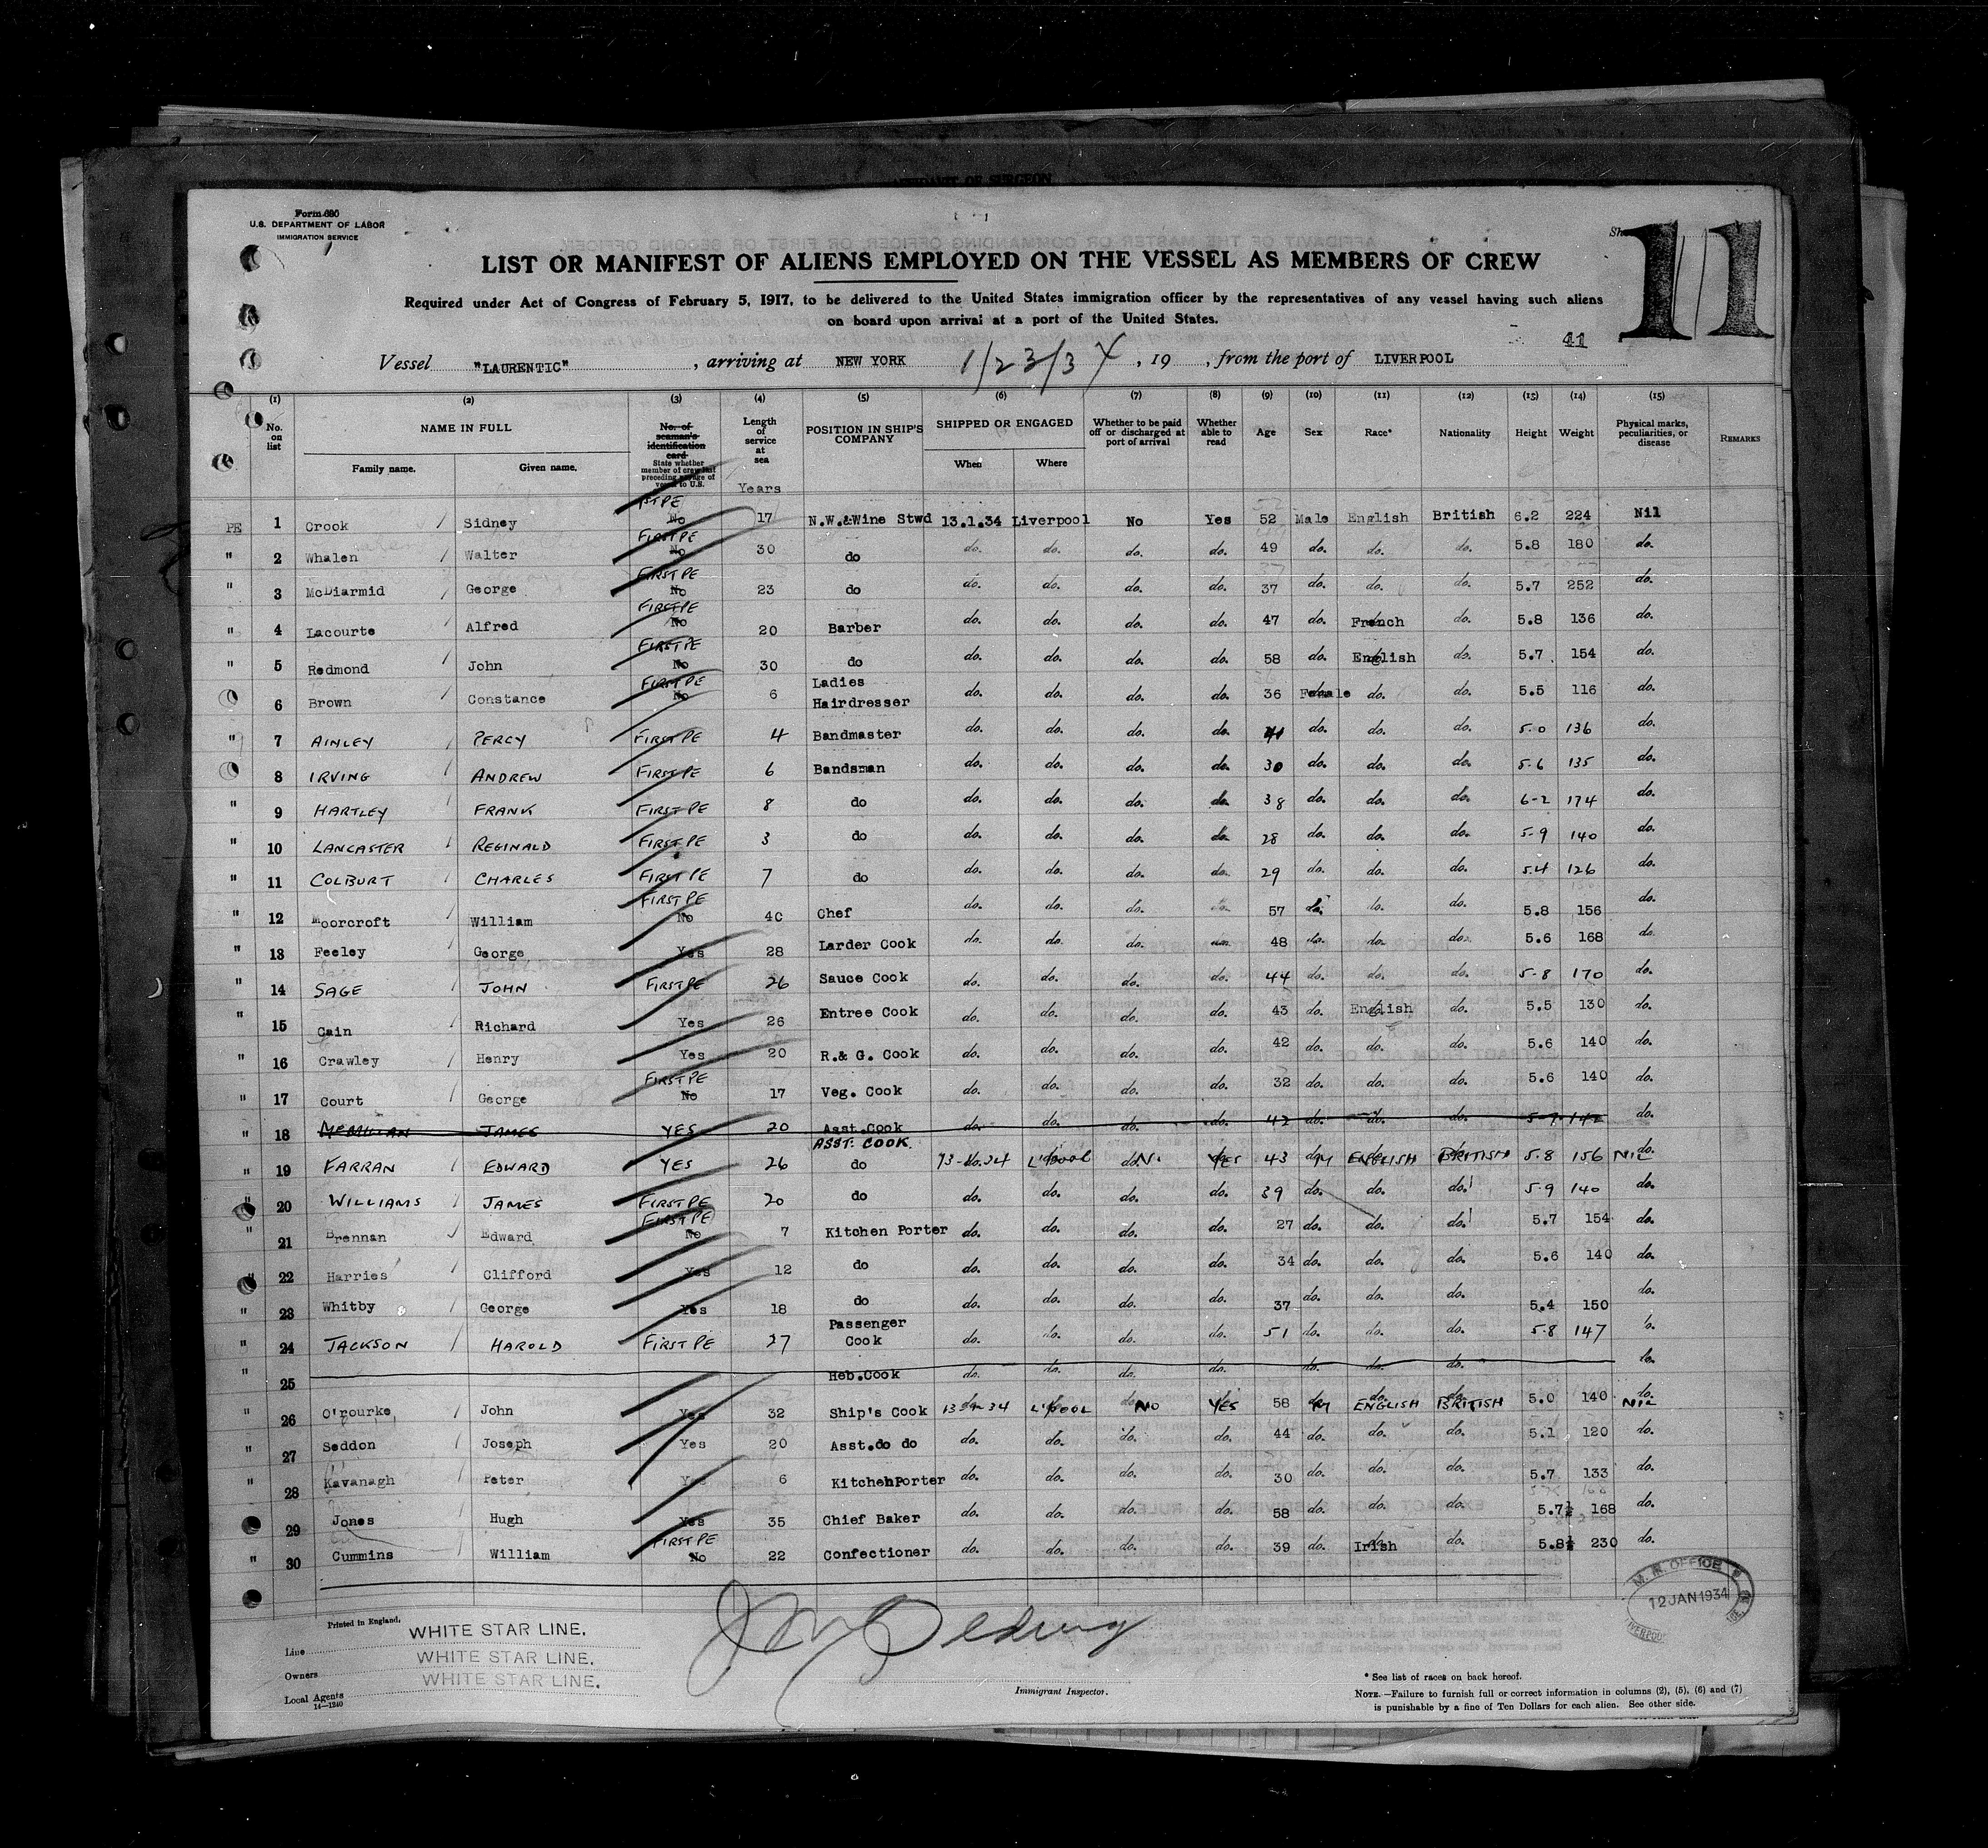 AFFIDAVIT OF SURGEON
Form 680
U.S. DEPARTMENT OF LABOR
IMMIGRATION SERVICE
11
LIST OR MANIFEST OF ALIENS EMPLOYED ON THE VESSEL AS MEMBERS OF CREW
Required under Act of Congress of February 5, 1917, to be delivered to the United States immigration officer by the representatives of any vessel having such aliens
on board upon arrival at a port of the United States.
41
Vessel "LAURENTIC", arriving at NEW YORK 1/23/34, 19 , from the port of LIVERPOOL
(1) (2) (3) (4) (5) (6) (7) (8) (9) (10) (11) (12) (13) (14) (15)
No. on list NAME IN FULL Family name. Given name. No. of seaman's identification card State whether member of crew last preceding voyage of vessel to U.S. Length of service at sea Years POSITION IN SHIP'S COMPANY SHIPPED OR ENGAGED When Where Whether to be paid off or discharged at port of arrival Whether able to read Age Sex Race* Nationality Height Weight Physical marks, peculiarities, or disease REMARKS
PE 1 Crook Sidney 1ST PE No 17 N.W.&Wine Stwd 13.1.34 Liverpool No Yes 52 Male English British 6.2 224 Nil
" 2 Whalen Walter FIRST PE No 30 do do. do. do. do. 49 do. do. do. 5.8 180 do.
" 3 McDiarmid George FIRST PE No 23 do do. do. do. do. 37 do. do. do. 5.7 252 do.
" 4 Lacourte Alfred FIRST PE No 20 Barber do. do. do. do. 47 do. French do. 5.8 136 do.
" 5 Redmond John FIRST PE No 30 do do. do. do. do. 58 do. English do. 5.7 154 do.
6 Brown Constance FIRST PE No 6 Ladies Hairdresser do. do. do. do. 36 Female do. do. 5.5 116 do.
" 7 AINLEY PERCY FIRST PE 4 Bandmaster do. do. do. do. 41 do. do. do. 5-0 136 do.
8 IRVING ANDREW FIRST PE 6 Bandsman do. do. do. do. 30 do. do. do. 5-6 135 do.
" 9 HARTLEY FRANK FIRST PE 8 do do. do. do. do. 38 do. do. do. 6-2 174 do.
" 10 LANCASTER REGINALD FIRST PE 3 do do. do. do. do. 28 do. do. do. 5-9 140 do.
" 11 COLBURT CHARLES FIRST PE 7 do do. do. do. do. 29 do. do. do. 5.4 126 do.
" 12 Moorcroft William FIRST PE No 40 Chef do. do. do. do. 57 do. do. do. 5.8 156 do.
" 13 Feeley George Yes 28 Larder Cook do. do. do. do. 48 do. do. do. 5.6 168 do.
" 14 SAGE JOHN FIRST PE 26 Sauce Cook do. do. do. do. 44 do. do. do. 5-8 170 do.
" 15 Cain Richard Yes 26 Entree Cook do. do. do. do. 43 do. English do. 5.5 130 do.
" 16 Crawley Henry Yes 20 R.& G. Cook do. do. do. do. 42 do. do. do. 5.6 140 do.
" 17 Court George FIRST PE No 17 Veg. Cook do. do. do. do. 32 do. do. do. 5.6 140 do.
" 18 McMILLAN JAMES YES 20 Asst.Cook do. do. do. do. 42 do. do. do. 5-9 142 do.
" 19 FARRAN EDWARD YES 26 ASST. COOK do 13-1-34 L'pool No YES 43 M ENGLISH BRITISH 5.8 156 NIL
" 20 WILLIAMS JAMES FIRST PE 20 do do. do. do. do. 39 do. do. do. 5-9 140 do.
" 21 Brennan Edward FIRST PE No 7 Kitchen Porter do. do. do. do. 27 do. do. do. 5.7 154 do.
" 22 Harries Clifford Yes 12 do do. do. do. do. 34 do. do. do. 5.6 140 do.
" 23 Whitby George Yes 18 do do. do. do. do. 37 do. do. do. 5.4 150 do.
" 24 JACKSON HAROLD FIRST PE 27 Passenger Cook do. do. do. do. 51 do. do. do. 5-8 147 do.
" 25 Heb.Cook do. do. do. do. do. do. do. do.
" 26 O'rourke John Yes 32 Ship's Cook 13 34 L'POOL NO YES 58 M ENGLISH BRITISH 5.0 140 NIL
" 27 Seddon Joseph Yes 20 Asst.do do do. do. do. do. 44 do. do. do. 5.1 120 do.
" 28 Kavanagh Peter Yes 6 KitchenPorter do. do. do. do. 30 do. do. do. 5.7 133 do.
29 Jones Hugh Yes 35 Chief Baker do. do. do. do. 58 do. do. do. 5.7½ 168 do.
" 30 Cummins William FIRST PE No 22 Confectioner do. do. do. do. 39 do. Irish do. 5.8½ 230 do.
M.R. OFFICE
12 JAN 1934
LIVERPOOL
Printed in England.
Line WHITE STAR LINE.
Owners WHITE STAR LINE.
Local Agents WHITE STAR LINE.
14—1240
Immigrant Inspector.
* See list of races on back hereof.
NOTE.—Failure to furnish full or correct information in columns (2), (5), (6) and (7)
is punishable by a fine of Ten Dollars for each alien. See other side.